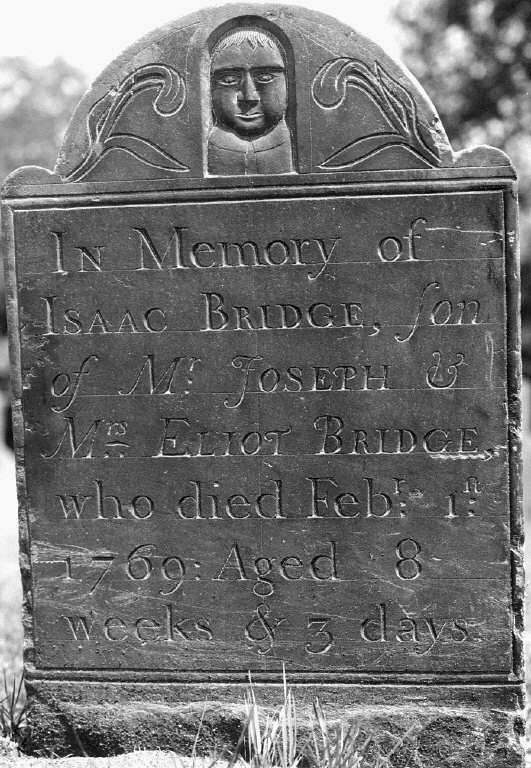 In Memory of
Isaac Bridge, ſon
of Mr. Joseph &
Mrs. Eliot Bridge,
who died Febr. 1n.
1769: Aged 8
weeks & 3 days.